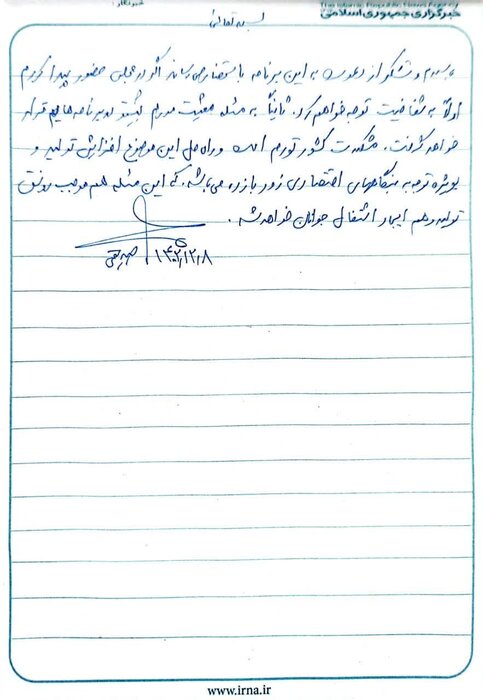 The Islamic Republic News Agency
خبرگزاری جمهوری اسلامی
خبرنگار:
بسمه تعالی
با سلام و تشکر از دعوت به این برنامه با استحضار می‌رساند اگر در مجلس حضور پیدا کردم
اولاً به شفافیت توجه خواهم کرد. ثانیاً به مسئله معیشت مردم بیشتر در برنامه‌هایم قرار
خواهد گرفت. مشکلات کشور تورم است و راه حل این موضوع افزایش تولید و
بویژه توجه به بنگاههای اقتصادی زود بازده می‌باشد. که این مسئله هم موجب رونق
تولید و هم ایجاد اشتغال جوانان خواهد شد.
۱۴۰۲/۱۲/۸
www.irna.ir